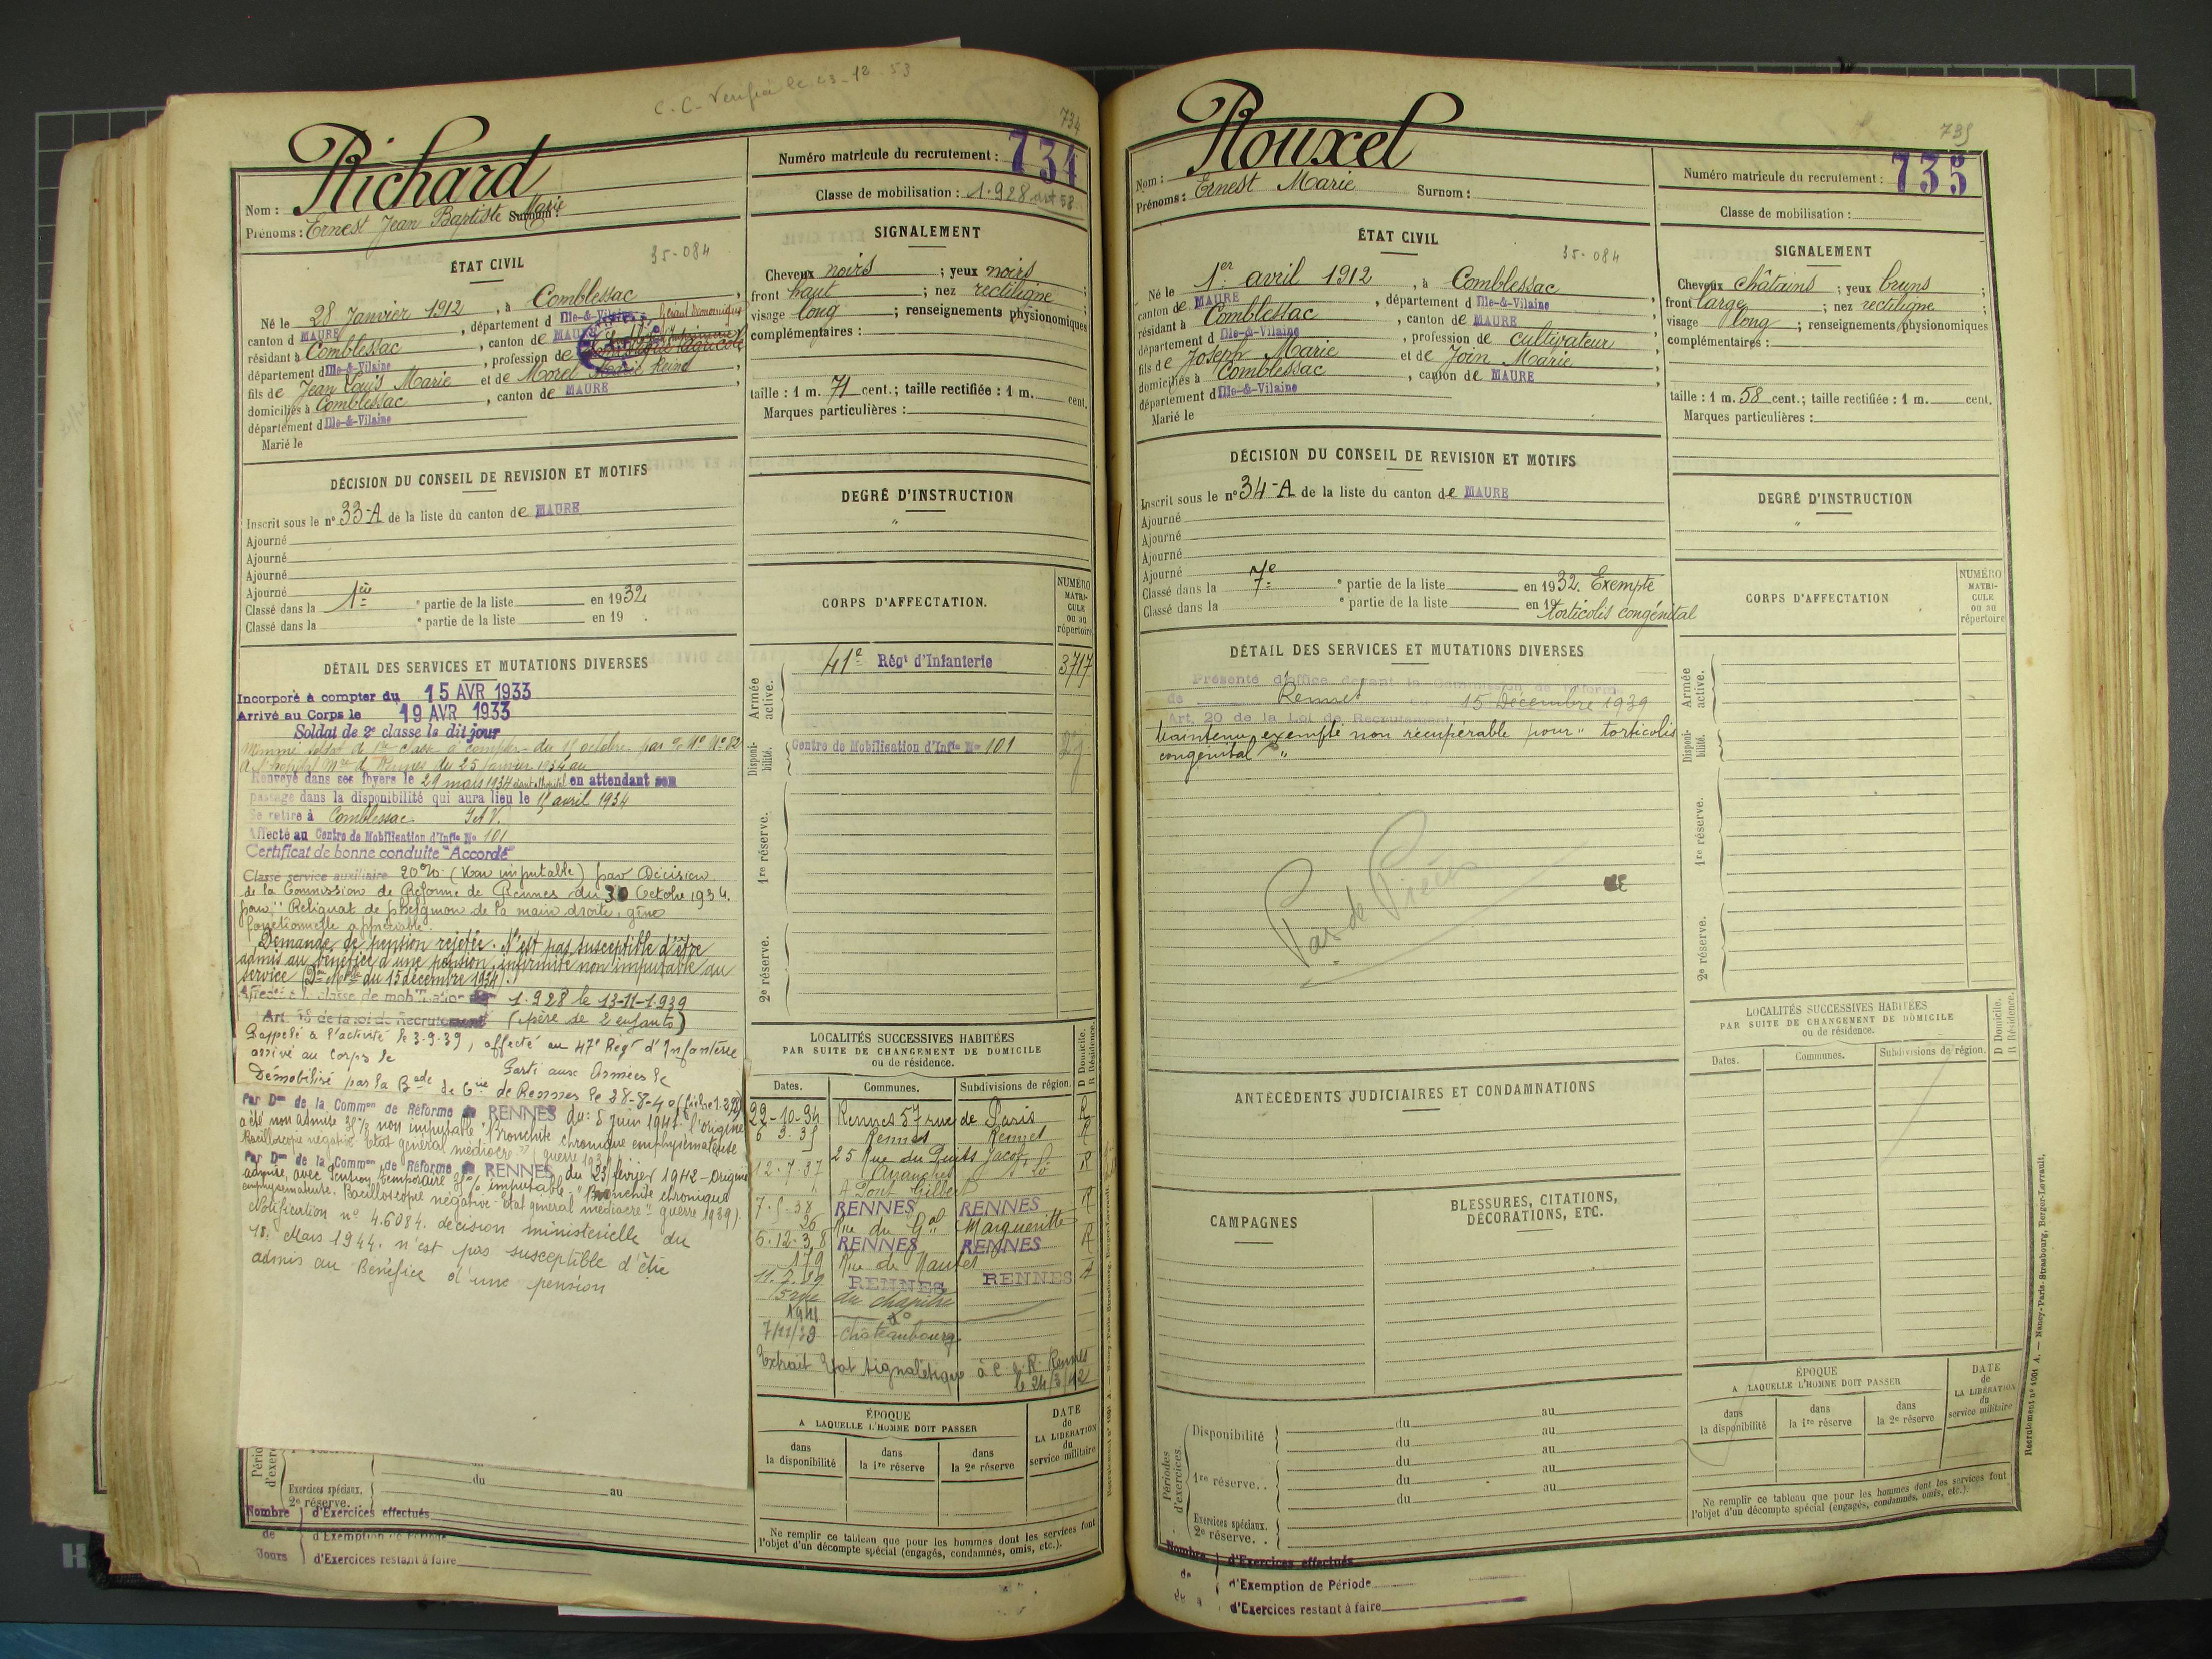 C.C. Vérifié le 23-12-53
734
Richard
Nom :
Prénoms : Ernest Jean Baptiste Marie Surnom :
Numéro matricule du recrutement : 734
Classe de mobilisation : 1.928
ÉTAT CIVIL
35-084
Né le 28 Janvier 1912, à Comblessac,
canton d MAURE, département d Ille-&-Vilaine
résidant à Comblessac, canton de MAURE
département d Ille-&-Vilaine, profession de
fils de Jean Louis Marie et de Morel Marie Reine
domiciliés à Comblessac, canton de MAURE,
département d Ille-&-Vilaine
Marié le
SIGNALEMENT
Cheveux noirs ; yeux noirs ;
front haut ; nez rectiligne ;
visage long ; renseignements physionomiques
complémentaires :
taille : 1 m. 71 cent.; taille rectifiée : 1 m. cent.
Marques particulières :
DÉCISION DU CONSEIL DE REVISION ET MOTIFS
Inscrit sous le n° 33-A de la liste du canton de MAURE
Ajourné
Ajourné
Ajourné
Ajourné
Classé dans la 1ère e partie de la liste en 1932
Classé dans la e partie de la liste en 19 .
DEGRÉ D'INSTRUCTION
"
CORPS D'AFFECTATION.
NUMÉRO MATRI-CULE ou au répertoire
Armée active.
41e Régt d'Infanterie 3717
Disponi-bilité.
Centre de Mobilisation d'Infie No 101
1re réserve.
2e réserve.
DÉTAIL DES SERVICES ET MUTATIONS DIVERSES
Incorporé à compter du 15 AVR 1933
Arrivé au Corps le 19 AVR 1933
Soldat de 2e classe le dit jour
Nommé soldat de 1re classe à compter du 1er octobre par
A l'hôpital Mre de Rennes du 25 Janvier 1934 au
Renvoyé dans ses foyers le 21 mars 1934 en attendant son
passage dans la disponibilité qui aura lieu le 15 avril 1934
Se retire à Comblessac. I et V.
Affecté au Centre de Mobilisation d'Infie No 101
Certificat de bonne conduite "Accordé"
Classé service auxiliaire 20% (non imputable) par Décision
de la Commission de Réforme de Rennes du 30 Octobre 1934.
pour "Reliquat de phlegmon de la main droite, gêne
fonctionnelle appréciable".
Demande de pension rejetée. N'est pas susceptible d'être
admis au bénéfice d'une pension, infirmité non imputable au
service (Don Mlle du 15 décembre 1934).
Affecté à la classe de mobilisation 1.928 le 13-11-1.939
Art. 58 de la loi de Recrutement (père de 2 enfants)
Rappelé à l'activité le 3-9-39, affecté au 47e Régt d'Infanterie
arrivé au Corps le
Parti aux Armées le
Démobilisé par la Bade de Gie de Rennes le 28-8-40
Par Don de la Common de Réforme de RENNES du: 5 Juin 1941 l'origine
a été non admise 35% non imputable "Bronchite chronique emphysémateuse
Bacilloscopie négative - Etat général médiocre"
Par Don de la Common de Réforme de RENNES du 23 février 1942 - Origine
admise, avec Pension temporaire 35% imputable. "Bronchite chronique
emphysémateuse. Bacilloscopie négative - Etat général médiocre" guerre 1939).
Notification n° 4.6084. décision ministérielle du
18. Mars 1944. n'est pas susceptible d'être
admis au Bénéfice d'une pension
LOCALITÉS SUCCESSIVES HABITÉES
PAR SUITE DE CHANGEMENT DE DOMICILE
ou de résidence.
D Domicile. R Résidence.
Dates. Communes. Subdivisions de région.
22-10-34 Rennes 57 rue de Paris R
6 3.35 Rennes Rennes R
25 Rue du Puits Jacob
12.7.37 Avranches St Lô R
4 Pont Gilbert
7.5.38 RENNES RENNES R
26 Rue du Gal Margueritte
6.12.38 RENNES RENNES R
179 Rue de Nantes
11.2.39 RENNES RENNES
15 rue du chapitre
1941
7/11/39 Châteaubourg
Extrait Etat signalétique à C. d. R. Rennes
le 24/3/42
ÉPOQUE
A LAQUELLE L'HOMME DOIT PASSER
DATE de LA LIBÉRATION du service militaire
dans la disponibilité
dans la 1re réserve
dans la 2e réserve
Ne remplir ce tableau que pour les hommes dont les services font
l'objet d'un décompte spécial (engagés, condamnés, omis, etc.).
du
du au
Exercices spéciaux.
2e réserve.
Nombre d'Exercices effectués
de d'Exemption de Période
Jours d'Exercices restant à faire
735
Rouxel
Nom :
Prénoms : Ernest Marie Surnom :
Numéro matricule du recrutement : 735
Classe de mobilisation :
ÉTAT CIVIL
35-084
Né le 1er avril 1912, à Comblessac,
canton de MAURE, département d Ille-&-Vilaine
résidant à Comblessac, canton de MAURE
département d Ille-&-Vilaine, profession de cultivateur
fils de Joseph Marie et de Join Marie
domiciliés à Comblessac, canton de MAURE
département d Ille-&-Vilaine
Marié le
SIGNALEMENT
Cheveux châtains ; yeux bruns ;
front large ; nez rectiligne ;
visage long ; renseignements physionomiques
complémentaires :
taille : 1 m. 58 cent.; taille rectifiée : 1 m. cent.
Marques particulières :
DÉCISION DU CONSEIL DE REVISION ET MOTIFS
Inscrit sous le n° 34-A de la liste du canton de MAURE
Ajourné
Ajourné
Ajourné
Ajourné
Classé dans la 7e e partie de la liste en 1932. Exempté
Classé dans la e partie de la liste en 19 torticolis congénital
DEGRÉ D'INSTRUCTION
"
CORPS D'AFFECTATION
NUMÉRO MATRI-CULE ou au répertoire
Armée active.
Disponi-bilité.
1re réserve.
2e réserve.
DÉTAIL DES SERVICES ET MUTATIONS DIVERSES
Présenté d'office devant la Commission de réforme
de Rennes du 15 Décembre 1939
Art. 20 de la Loi de Recrutement
Maintenu exempté non récupérable pour "torticolis
congénital"
Pas de Pièces
LOCALITÉS SUCCESSIVES HABITÉES
PAR SUITE DE CHANGEMENT DE DOMICILE
ou de résidence.
D Domicile. R Résidence.
Dates. Communes. Subdivisions de région.
ANTÉCÉDENTS JUDICIAIRES ET CONDAMNATIONS
CAMPAGNES
BLESSURES, CITATIONS,
DÉCORATIONS, ETC.
Périodes d'exercices
Disponibilité du au
du au
1re réserve. . du au
du au
du au
Exercices spéciaux.
2e réserve. .
ÉPOQUE
A LAQUELLE L'HOMME DOIT PASSER
DATE de LA LIBÉRATION du service militaire
dans la disponibilité
dans la 1re réserve
dans la 2e réserve
Ne remplir ce tableau que pour les hommes dont les services font
l'objet d'un décompte spécial (engagés, condamnés, omis, etc.).
Nombre d'Exercices effectués
de d'Exemption de Période
d'Exercices restant à faire
Recrutement n° 1001 A. — Nancy-Paris-Strasbourg, Berger-Levrault.